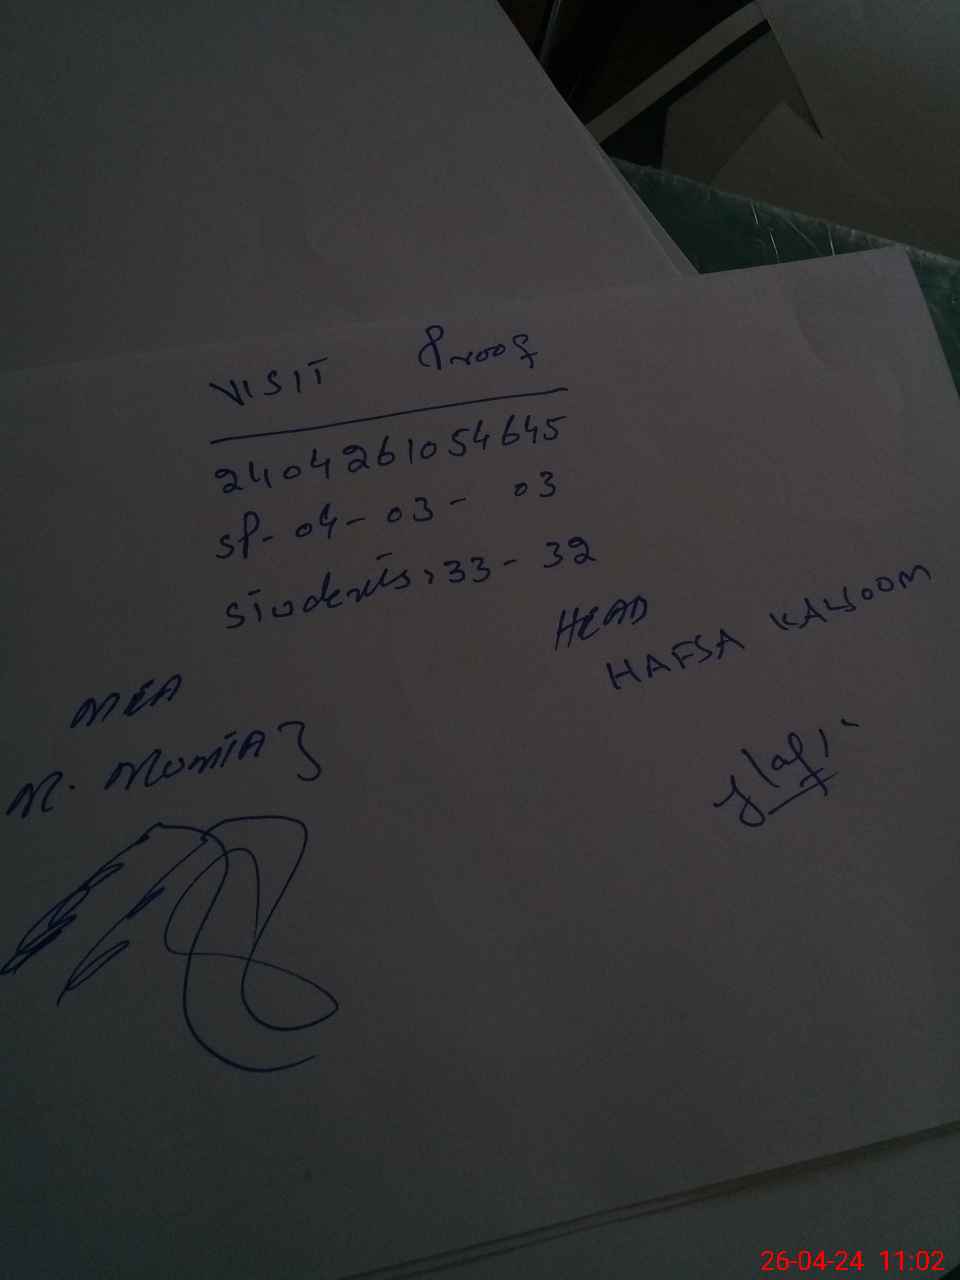 VISIT Proof
2404261054645
SP-04-03- 03
Students, 33-32
MEA
M. Mumtaz
HEAD
HAFSA KALSOOM
26-04-24 11:02